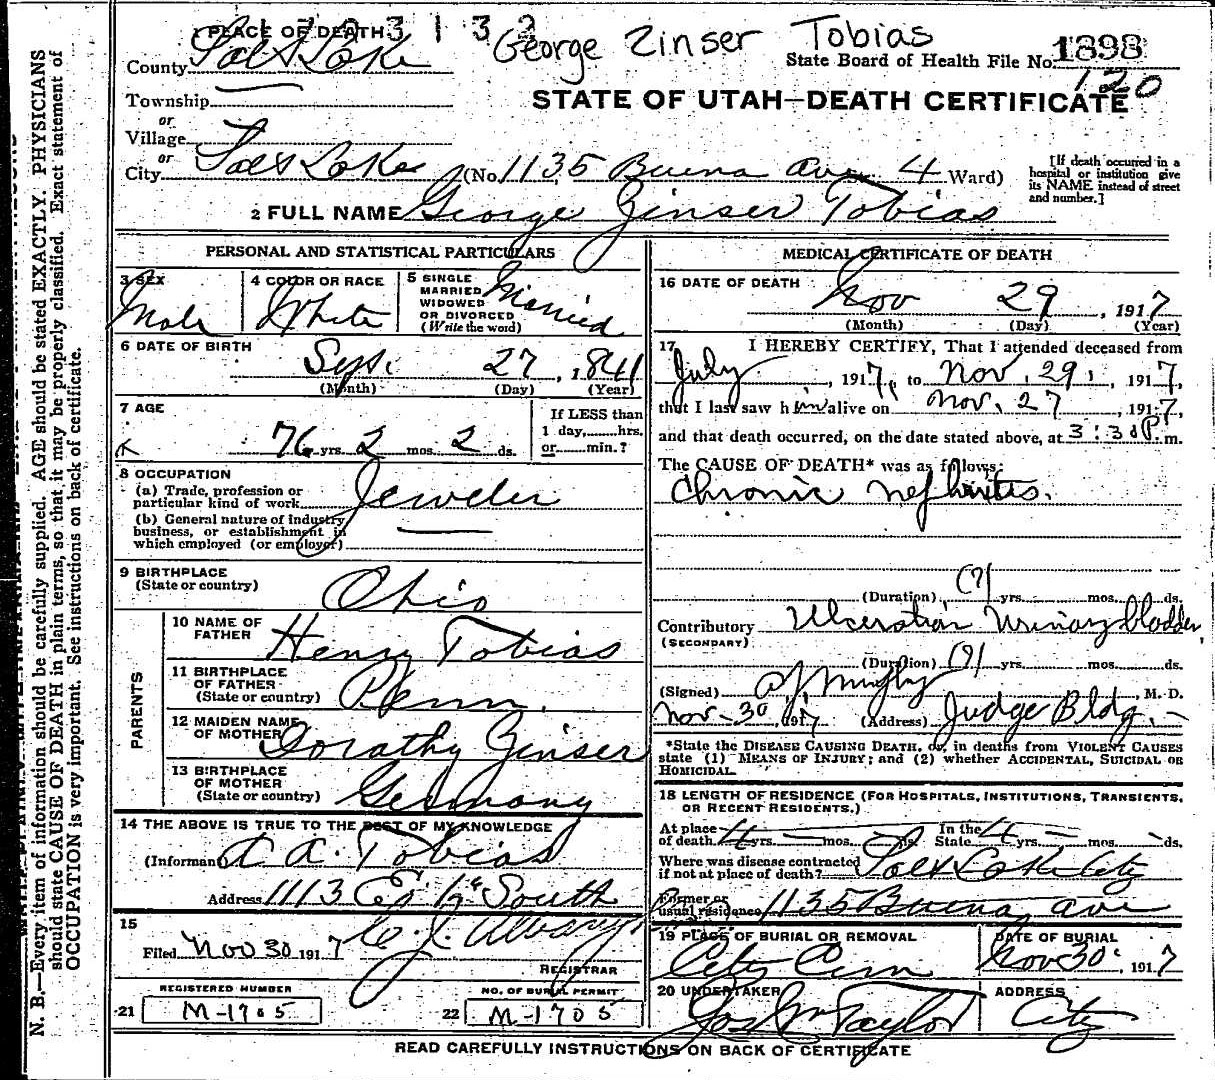 1 PLACE OF DEATH 3 1 3 2
George Zinser Tobias
County Salt Lake
State Board of Health File No. 1898
120
Township
or
Village
STATE OF UTAH—DEATH CERTIFICATE
or
City Salt Lake (No. 1135 Buena Ave. 4 Ward)
[If death occurred in a hospital or institution give its NAME instead of street and number.]
2 FULL NAME George Zinser Tobias
PERSONAL AND STATISTICAL PARTICULARS
3 SEX
Male
4 COLOR OR RACE
White
5 SINGLE
MARRIED
WIDOWED
OR DIVORCED
(Write the word)
Married
6 DATE OF BIRTH
Sept. 27, 1841
(Month) (Day) (Year)
7 AGE
76 yrs. 2 mos. 2 ds.
If LESS than
1 day, hrs.
or min.?
8 OCCUPATION
(a) Trade, profession or
particular kind of work Jeweler
(b) General nature of industry,
business, or establishment in
which employed (or employer)
9 BIRTHPLACE
(State or country) Ohio
PARENTS
10 NAME OF
FATHER Henry Tobias
11 BIRTHPLACE
OF FATHER
(State or country) Penn.
12 MAIDEN NAME
OF MOTHER Dorathy Zinser
13 BIRTHPLACE
OF MOTHER
(State or country) Germany
14 THE ABOVE IS TRUE TO THE BEST OF MY KNOWLEDGE
(Informant) A. Tobias
Address 1113 South
15
Filed Nov 30 1917
REGISTRAR
REGISTERED NUMBER
21 M-1705
NO. OF BURIAL PERMIT
22 M-1705
MEDICAL CERTIFICATE OF DEATH
16 DATE OF DEATH
Nov 29, 1917
(Month) (Day) (Year)
17 I HEREBY CERTIFY, That I attended deceased from
July, 1917, to Nov. 29, 1917,
that I last saw him alive on Nov. 27, 1917,
and that death occurred, on the date stated above, at 3:30 P. m.
The CAUSE OF DEATH* was as follows:
Chronic nephritis.
(Duration) (?) yrs. mos. ds.
Contributory Ulceration Urinary bladder
(SECONDARY)
(Duration) (?) yrs. mos. ds.
(Signed) , M. D.
Nov-30 1917 (Address) Judge Bldg.
*State the DISEASE CAUSING DEATH, or, in deaths from VIOLENT CAUSES
state (1) MEANS OF INJURY; and (2) whether ACCIDENTAL, SUICIDAL OR
HOMICIDAL.
18 LENGTH OF RESIDENCE (FOR HOSPITALS, INSTITUTIONS, TRANSIENTS,
OR RECENT RESIDENTS.)
At place
of death 4 yrs. — mos. — ds. In the State 4 yrs. — mos. — ds.
Where was disease contracted
if not at place of death? Salt Lake City
Former or
usual residence 1135 Buena Ave
19 PLACE OF BURIAL OR REMOVAL
City Cem
DATE OF BURIAL
Nov 30, 1917
20 UNDERTAKER
Jos Wm Taylor
ADDRESS
City
READ CAREFULLY INSTRUCTIONS ON BACK OF CERTIFICATE
N. B.—Every item of information should be carefully supplied. AGE should be stated EXACTLY. PHYSICIANS
should state CAUSE OF DEATH in plain terms, so that it may be properly classified. Exact statement of
OCCUPATION is very important. See instructions on back of certificate.